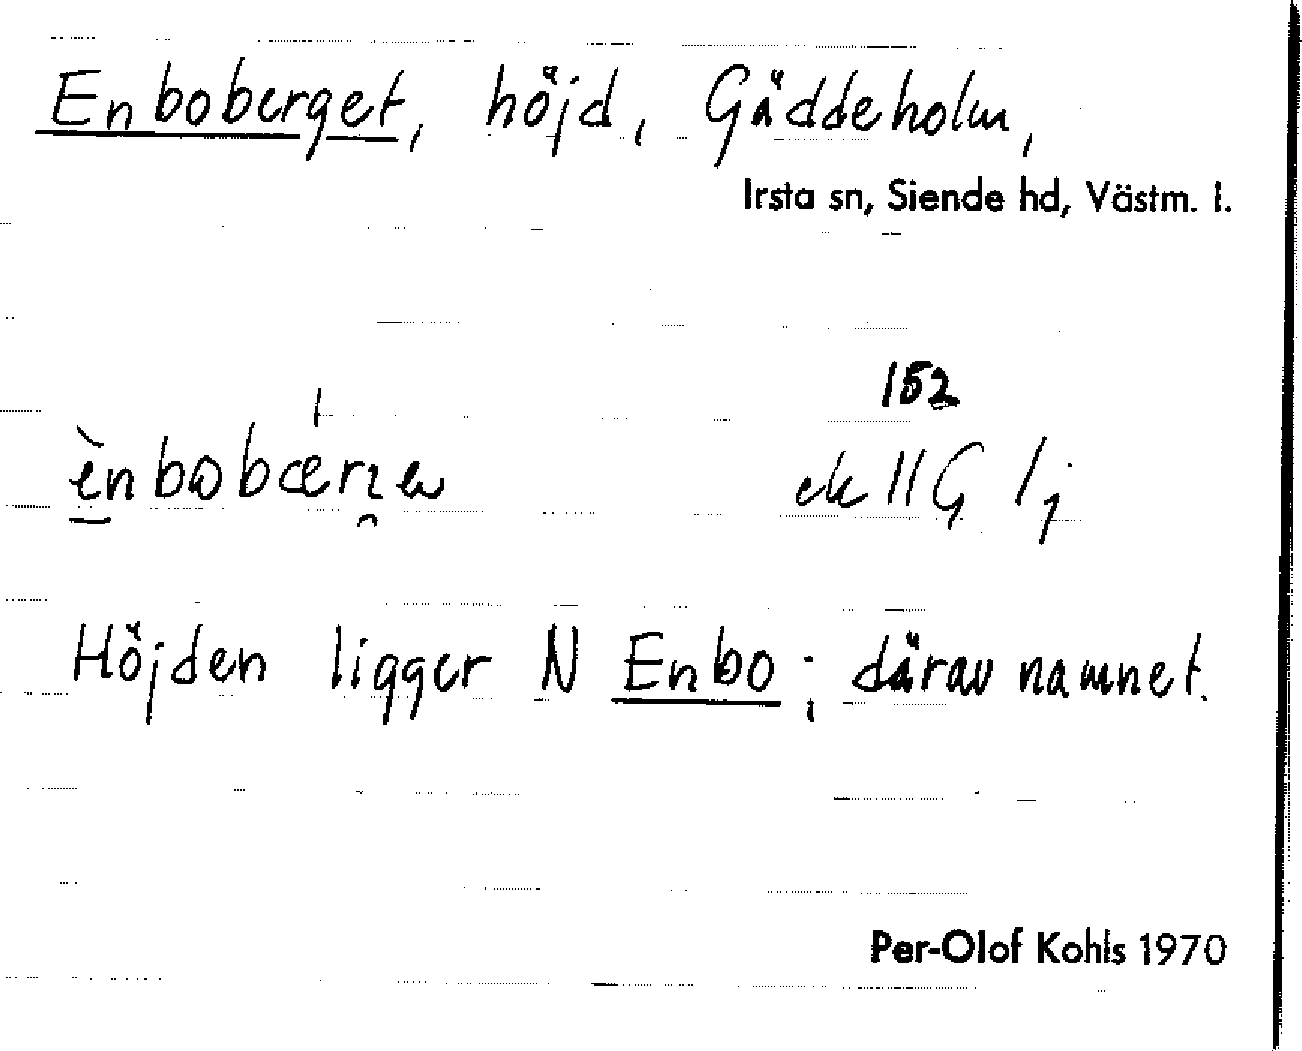 Enboberget, höjd, Gäddeholm,
Irsta sn, Siende hd, Västm. l.
152
ènbobærɪ̯ə ek 11 G 1j
Höjden ligger N Enbo; därav namnet.
Per-Olof Kohls 1970